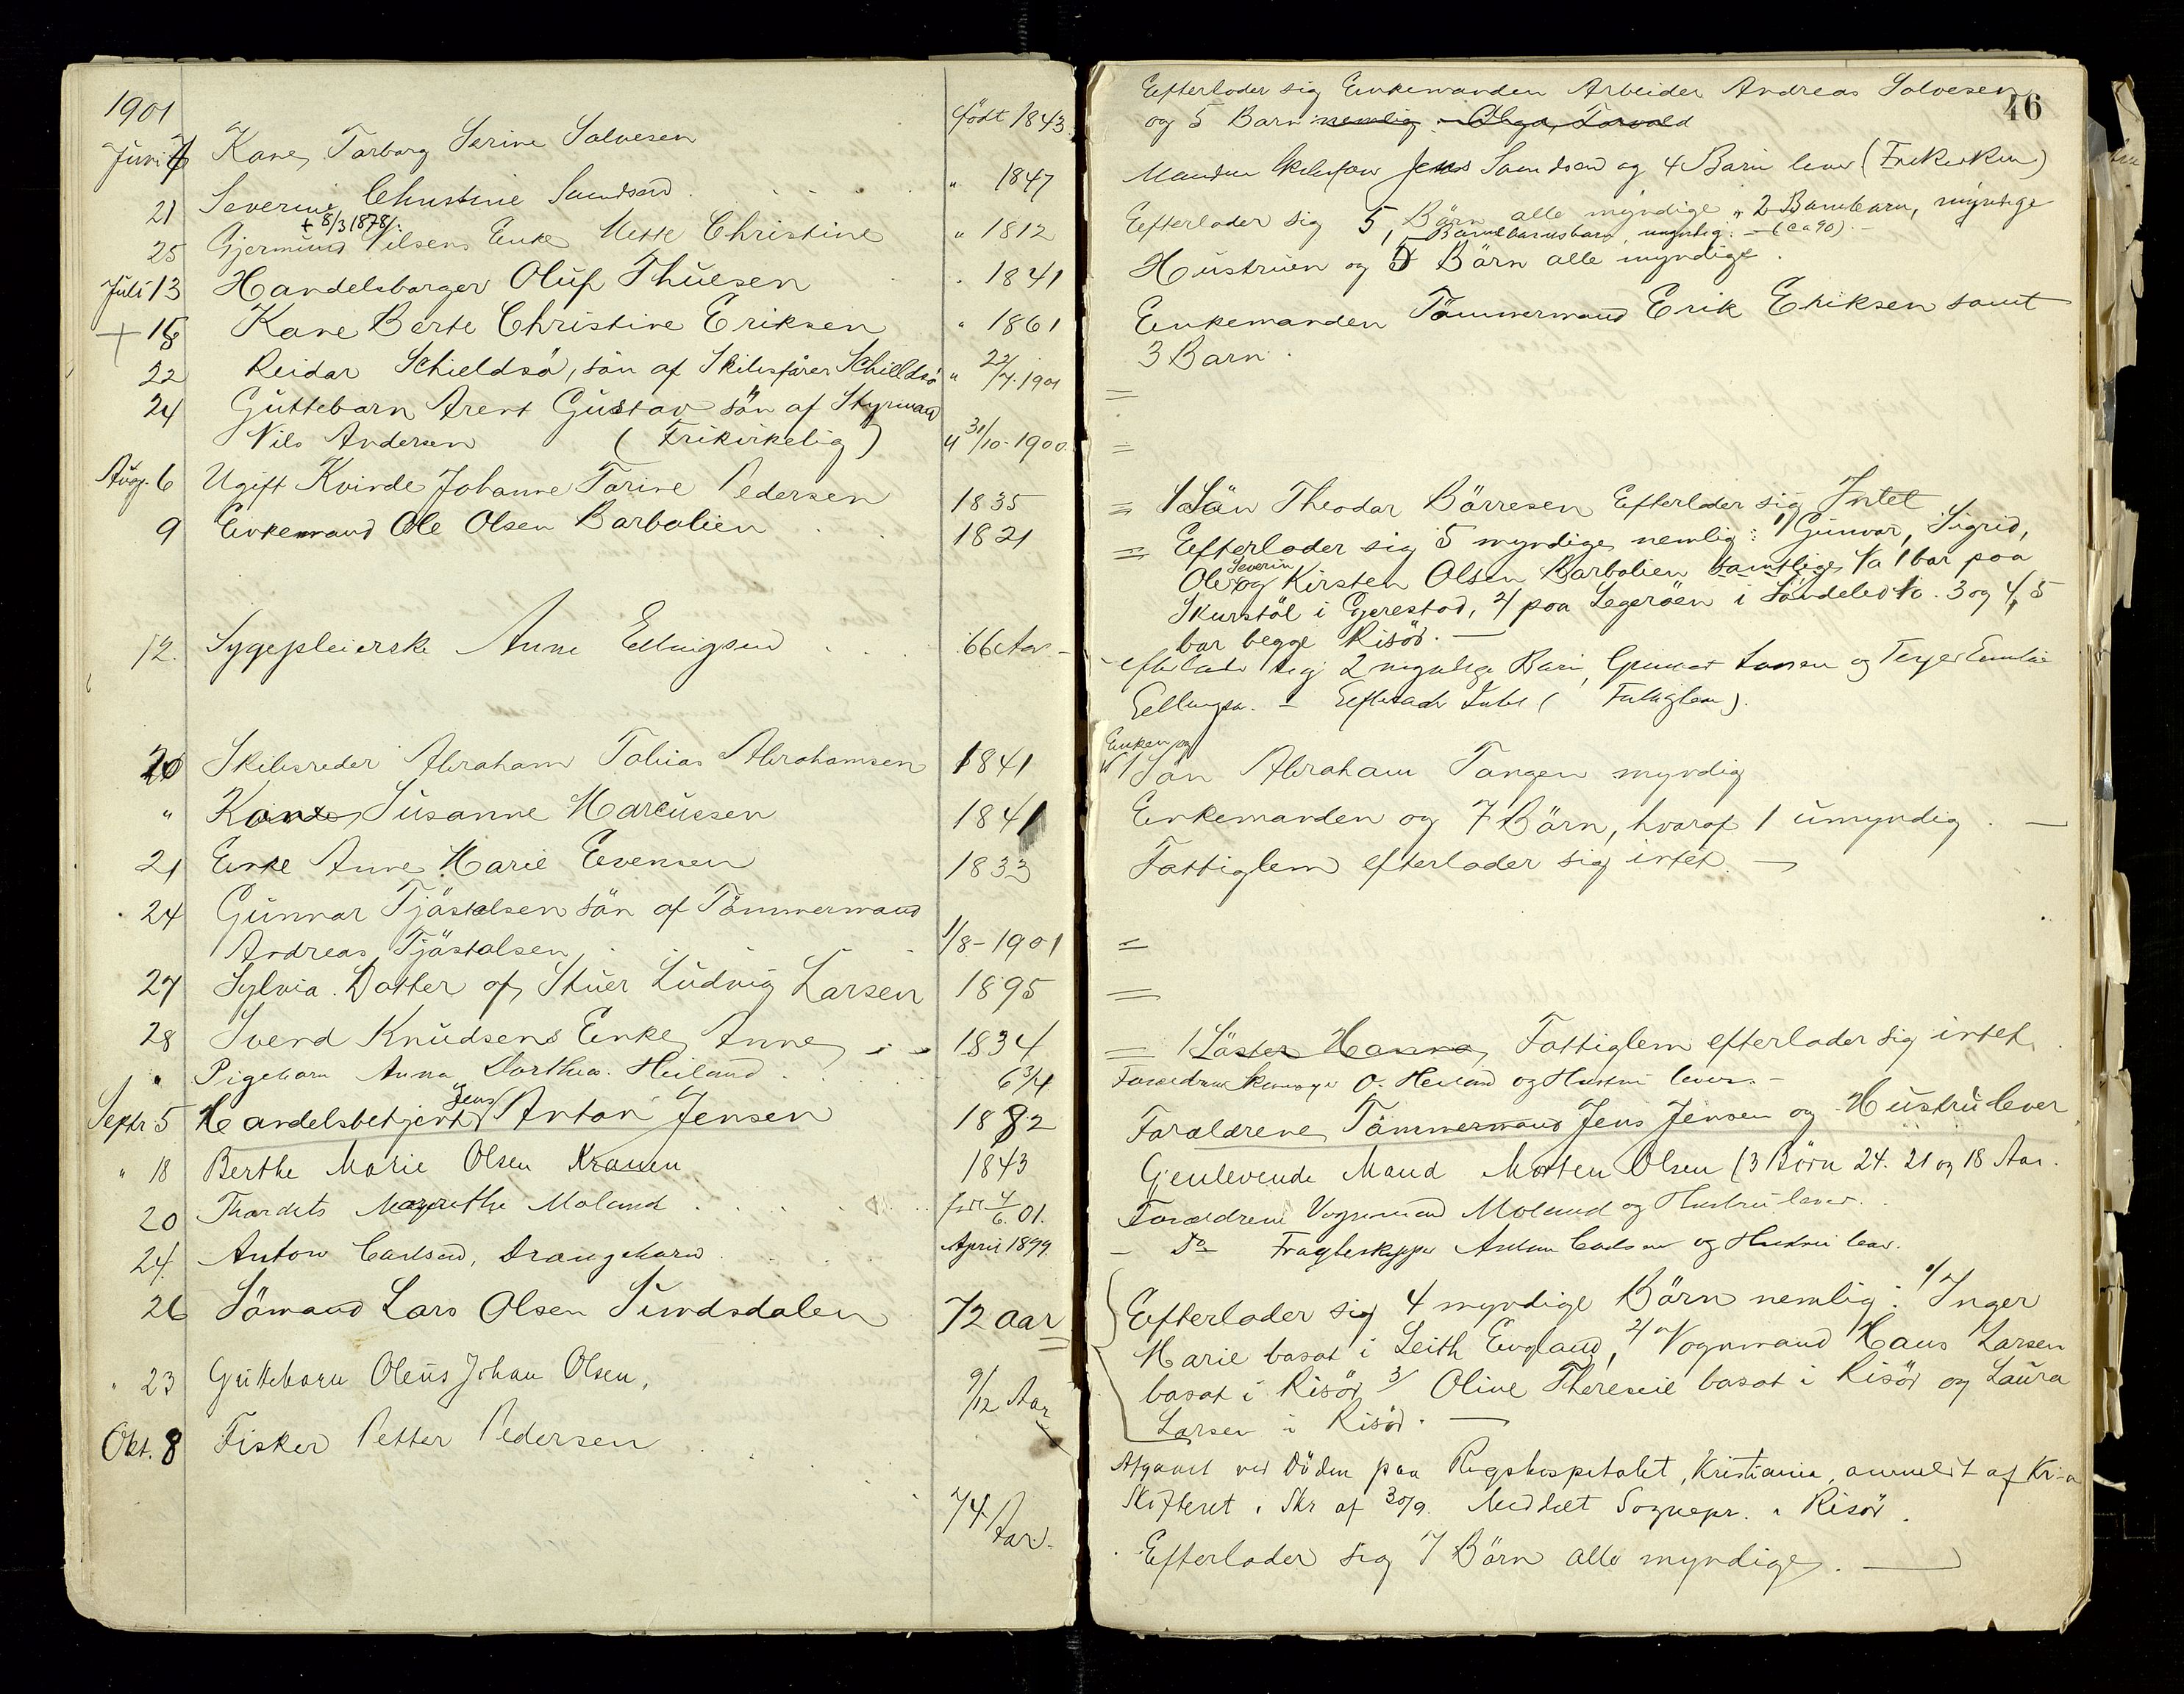 1901
født 1843
Juni 7 Kone Torborg Serine Salvesen
21 Severine Christine Samdsen " 1847
+ 8/3 1878/:
25 Gjermund Nilsens Enke Mette Christine " 1812
Juli 13 Handelsborger Oluf Thuesen " 1841
+ 18 Kone Berte Christine Eriksen " 1861
22 Reidar Schieldsö, sön af Skibsförer Schieldsö " 22/7 1901
24 Guttebarn Arent Gustav sön af Styrmand
Nils Andersen (Frikirkelig) " 31/10-1900
Aug. 6 Ugift Kvinde Johanne Torine Pedersen 1835
9 Enkemand Ole Olsen Barbolien 1821
12. Sygepleierske Anne Ellingsen 66 Aar
20 Skibsreder Abraham Tobias Abrahamsen 1841
" Kone Susanne Marcussen 1841
21 Enke Anne Marie Evensen 1833
24 Gunnar Tjöstolsen sön af Tömmermand
Andreas Tjöstolsen 1/8-1901
27 Sylvia Datter af Stuer Ludvig Larsen 1895
28 Svend Knudsens Enke Anne 1834
" Pigebarn Anna Dorthea Heiland 6 3/4
Jens
Septr 5 Handelsbetjent Anton Jensen 1882
" 18 Berthe Marie Olsen Kranen 1843
20 Thordis Margrethe Moland född 4/6.01.
24. Anton Carlsen, Drengebarn April 1899
26 Sömand Lars Olsen Sundsdalen 72 aar
" 23 Guttebarn Oleus Johan Olsen, 9/12 Aar
Okt. 8 Fisker Petter Pedersen
74 Aar.
46
Efterlader sig Enkemanden Arbeider Andreas Salvesen
og 5 Barn nemlig: Olga, Torvald
Manden Jens Samdsen og 4 Barn lever (Frikirken)
Efterlader sig 5 Börn alle myndige " 2 Barnebarn, myndige
1 Barnebarnsbarn, umyndig. - (ca 90) -
Hustruen og 5 Börn alle myndige.
Enkemanden Tömmermand Erik Eriksen samt
3 Barn.
=
=
= 1 Sön Theodor Börresen Efterlader sig Intet
= Efterlader sig 5 myndige nemlig: 1/ Gunvor, Sigrid,
Severin
Ole og Kirsten Olsen Barbolien samtlige No 1 bor paa
Skurstöl i Gjerestad, 2/ paa Legeröen i Söndeled No. 3 og 4, 5
bor begge Risör. —
efterlader sig 2 myndige Barn, Gunvor Larsen og Terje Emilie
Ellingsen. - Efterlader Intet (Fattiglem).
Enken og
1 Sön Abraham Tangen myndig
Enkemanden og 7 Börn, hvoraf 1 umyndig. —
Fattiglem efterlader sig intet. —
=
=
= 1 Söster Hanna, Fattiglem efterlader sig intet.
Forældrene O. Heiland og Hustru lever. -
Forældrene Tömmermand Jens Jensen og Hustru lever
Gjenlevende Mand Morten Olsen (3 Börn 24. 21 og 18 Aar.
Forældrene Vognmand Moland og Hustru lever.
— Do Fragteskipper Anton Carlsen og Hustru lever.
Efterlader sig 4 myndige Börn nemlig: 1/ Inger
Marie bosat i Leith England, 2/ Vognmand Hans Larsen
bosat i Risör, 3/ Oline Theresie bosat i Risör og Laura
Larsen i Risör. —
Afgaaet ved Döden paa Rigshospitalet, Kristiania, anmeldt af Kr-a
Skifteret i Skr af 30/9. Meddelt Sognepr. i Risör.
Efterlader sig 7 Börn alle myndige. —